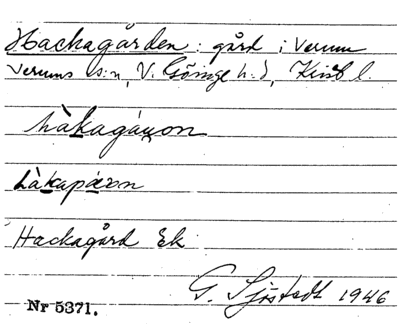 Hackagården: gård i Verum
Verums s:n, V. Göinge h.d, Krist l.
hàkagáṇon
hàkapáon
Hackagård Ek
G. Sjöstedt 1946
Nr 5371.